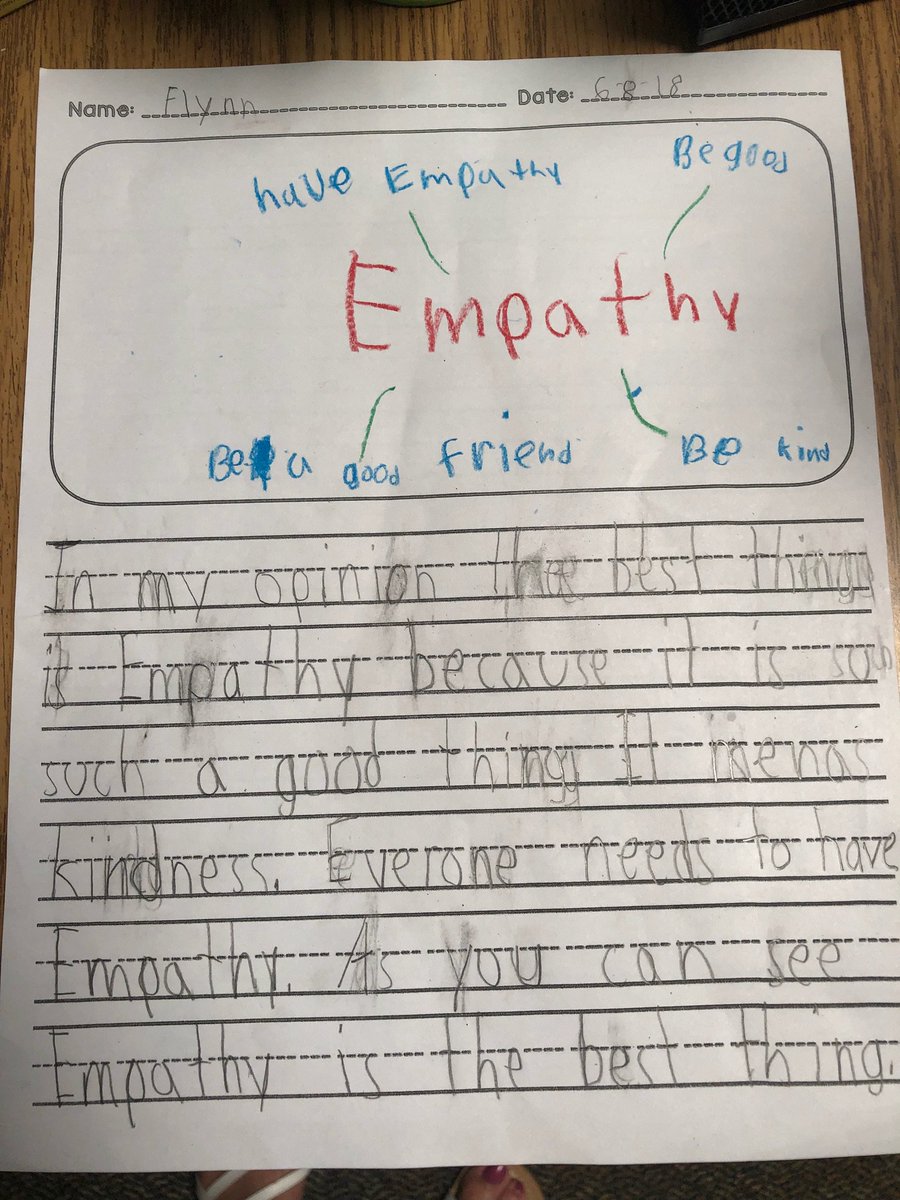 Name: Flynn Date: 6-8-18
have Empathy Be good
Empathy
Be a good friend Be kind
In my opinion the best thing
is Empathy because it is such
such a good thing It menas
kindness. Everone needs to have
Empathy. As you can see
Empathy is the best thing.